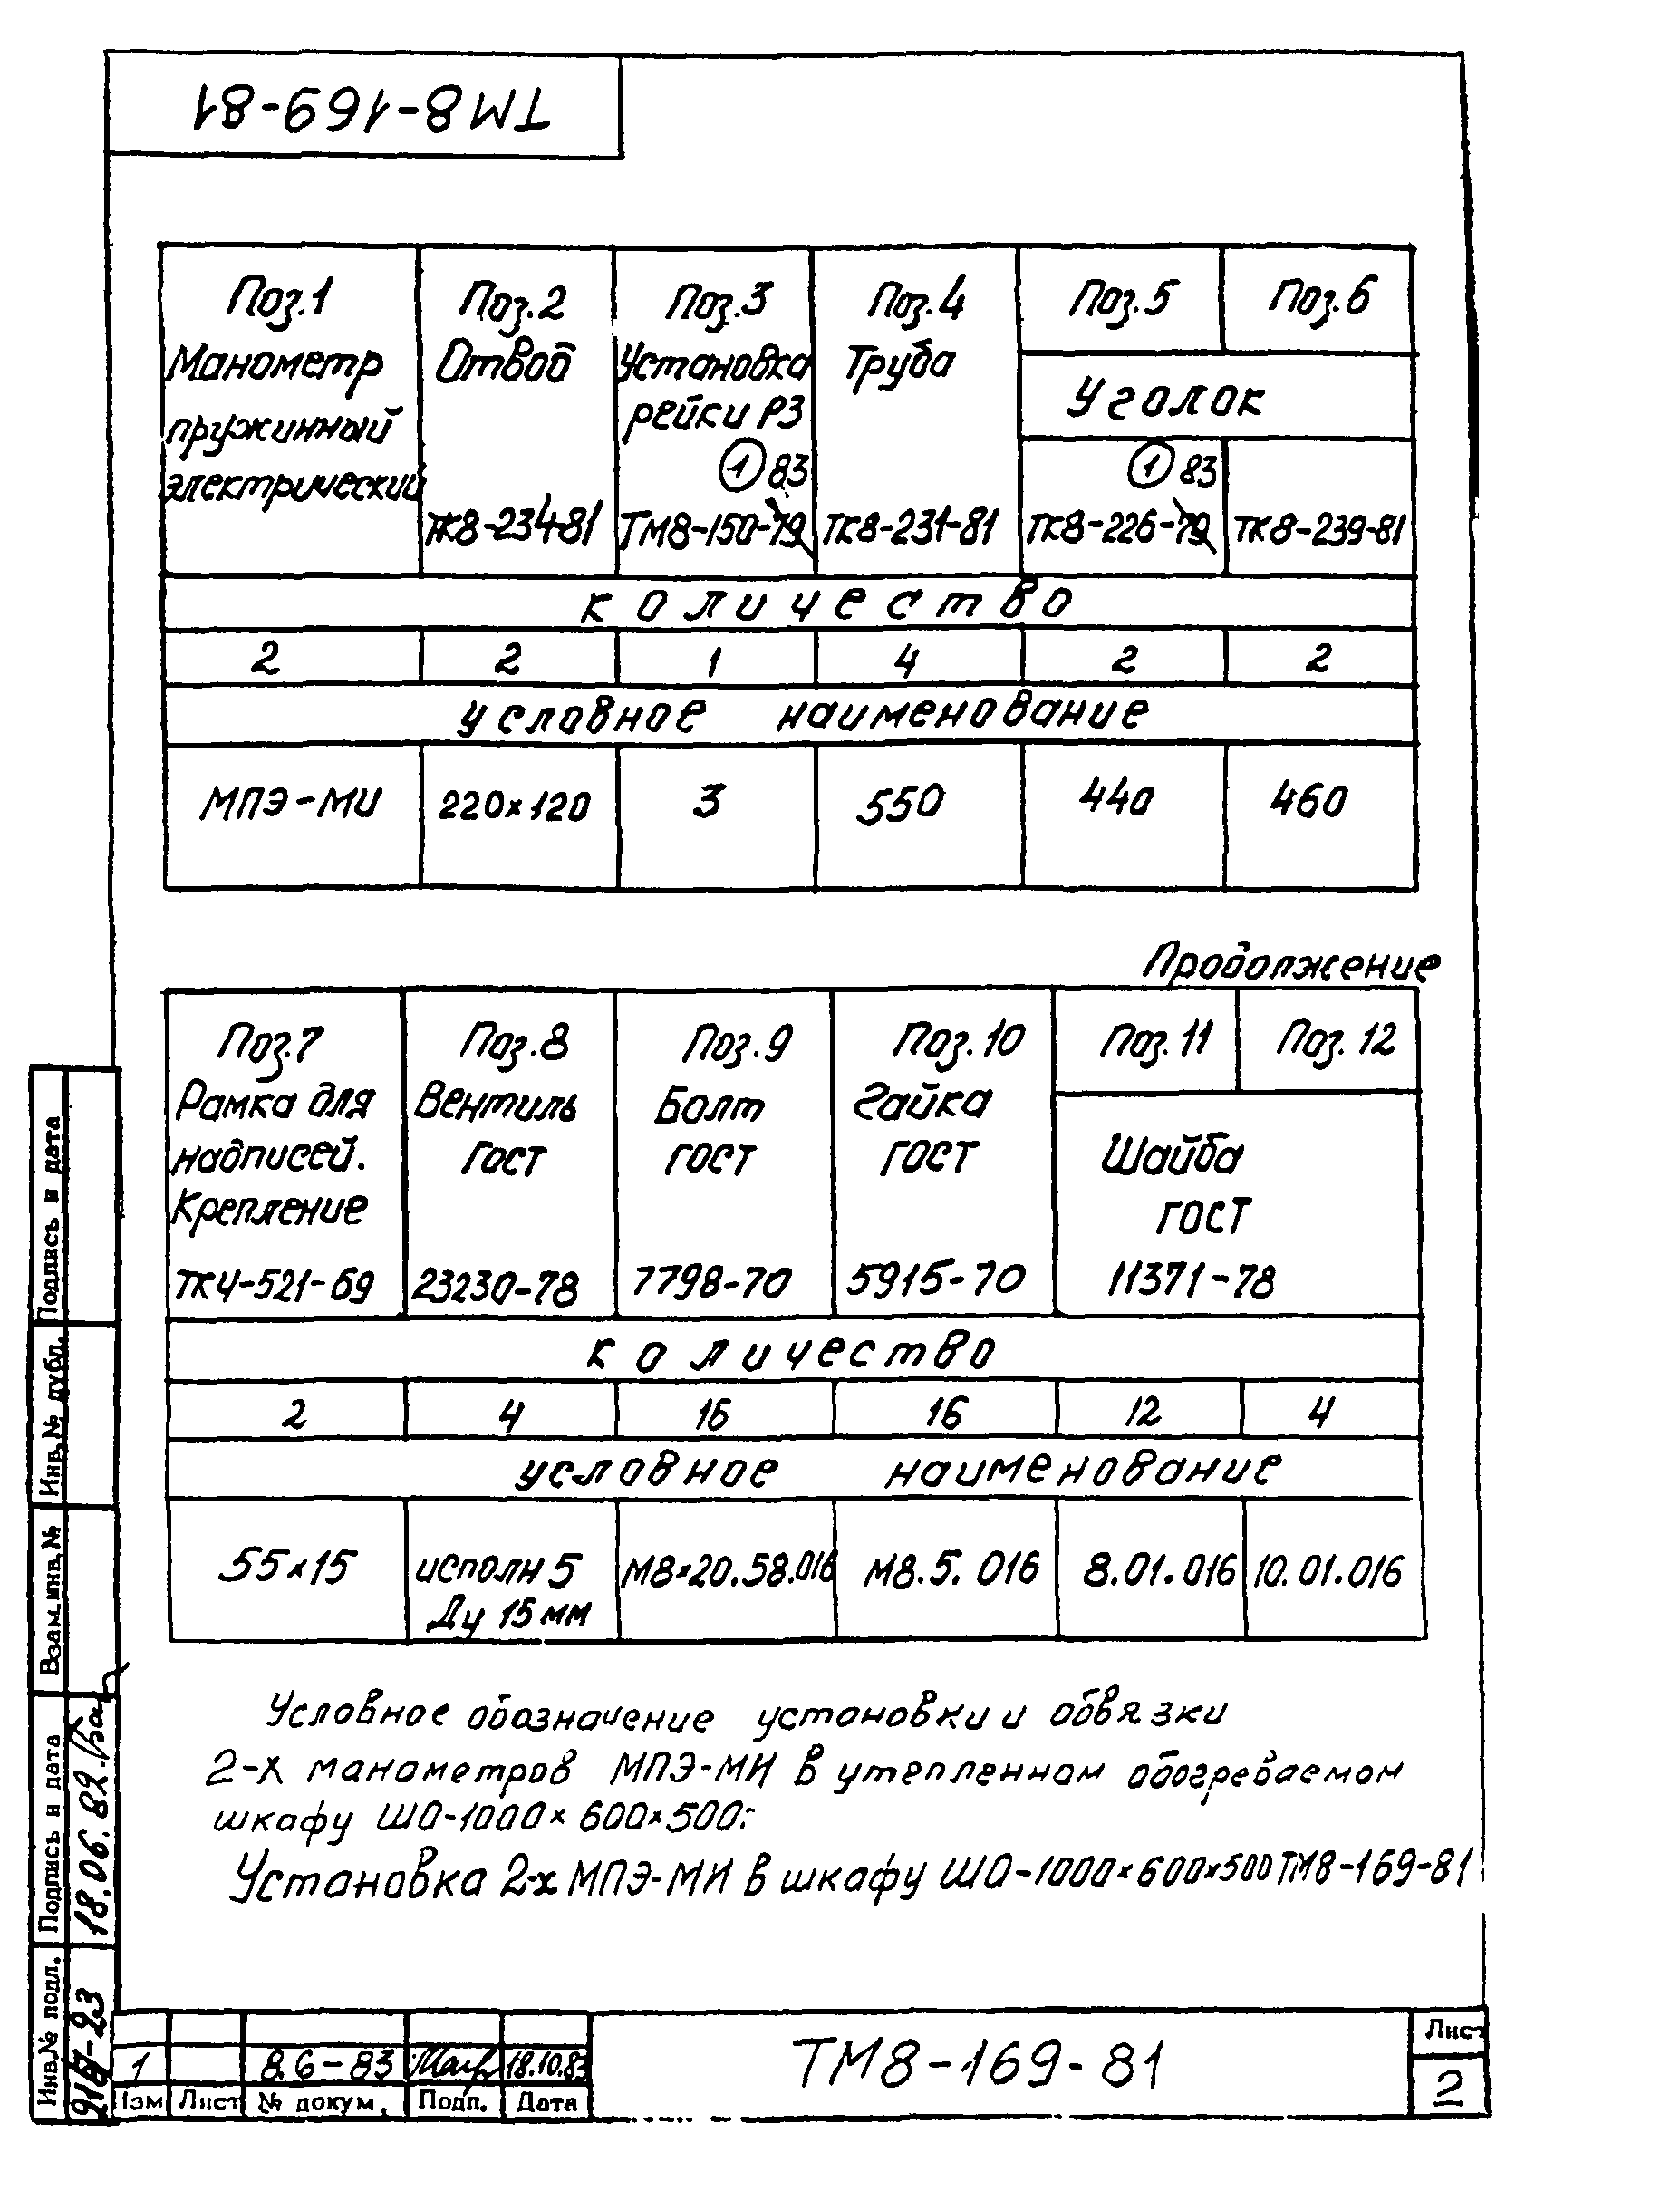 ТМ8-169-81
Поз.1 Поз.2 Поз.3 Поз.4 Поз.5 Поз.6
Манометр пружинный электрический
Отвод
Установка рейки Р3
Труба
Уголок
① 83
① 83
ТК8-234-81 ТМ8-150-79 ТК8-231-81 ТК8-226-79 ТК8-239-81
количество
2 2 1 4 2 2
условное наименование
МПЭ-МИ 220×120 3 550 440 460
Продолжение
Поз.7 Поз.8 Поз.9 Поз.10 Поз.11 Поз.12
Рамка для надписей. Крепление
Вентиль ГОСТ
Болт ГОСТ
Гайка ГОСТ
Шайба ГОСТ
ТК4-521-69 23230-78 7798-70 5915-70 11371-78
количество
2 4 16 16 12 4
условное наименование
55×15 исполн 5 М8×20.58.016 М8.5.016 8.01.016 10.01.016
Ду 15 мм
Условное обозначение установки и обвязки
2-х манометров МПЭ-МИ в утепленном обогреваемом
шкафу ШО-1000×600×500:
Установка 2-х МПЭ-МИ в шкафу ШО-1000×600×500 ТМ8-169-81
Подпись и дата
Инв.№ дубл.
Взам.инв.№
Подпись и дата
18.06.82.
Инв.№ подл.
1 8.6-83 18.10.83
Изм Лист № докум. Подп. Дата
ТМ8-169-81
Лист
2